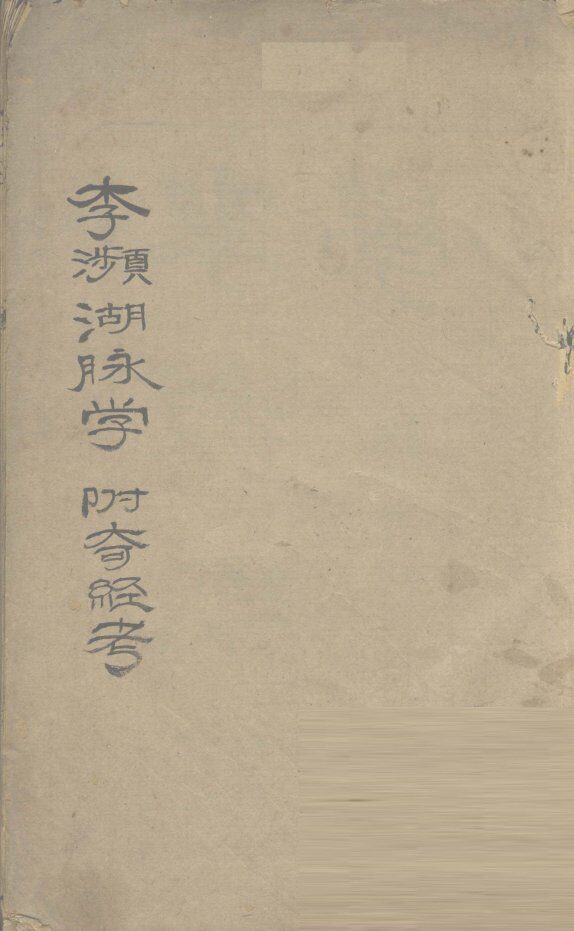 李瀕湖脉学 附奇经考